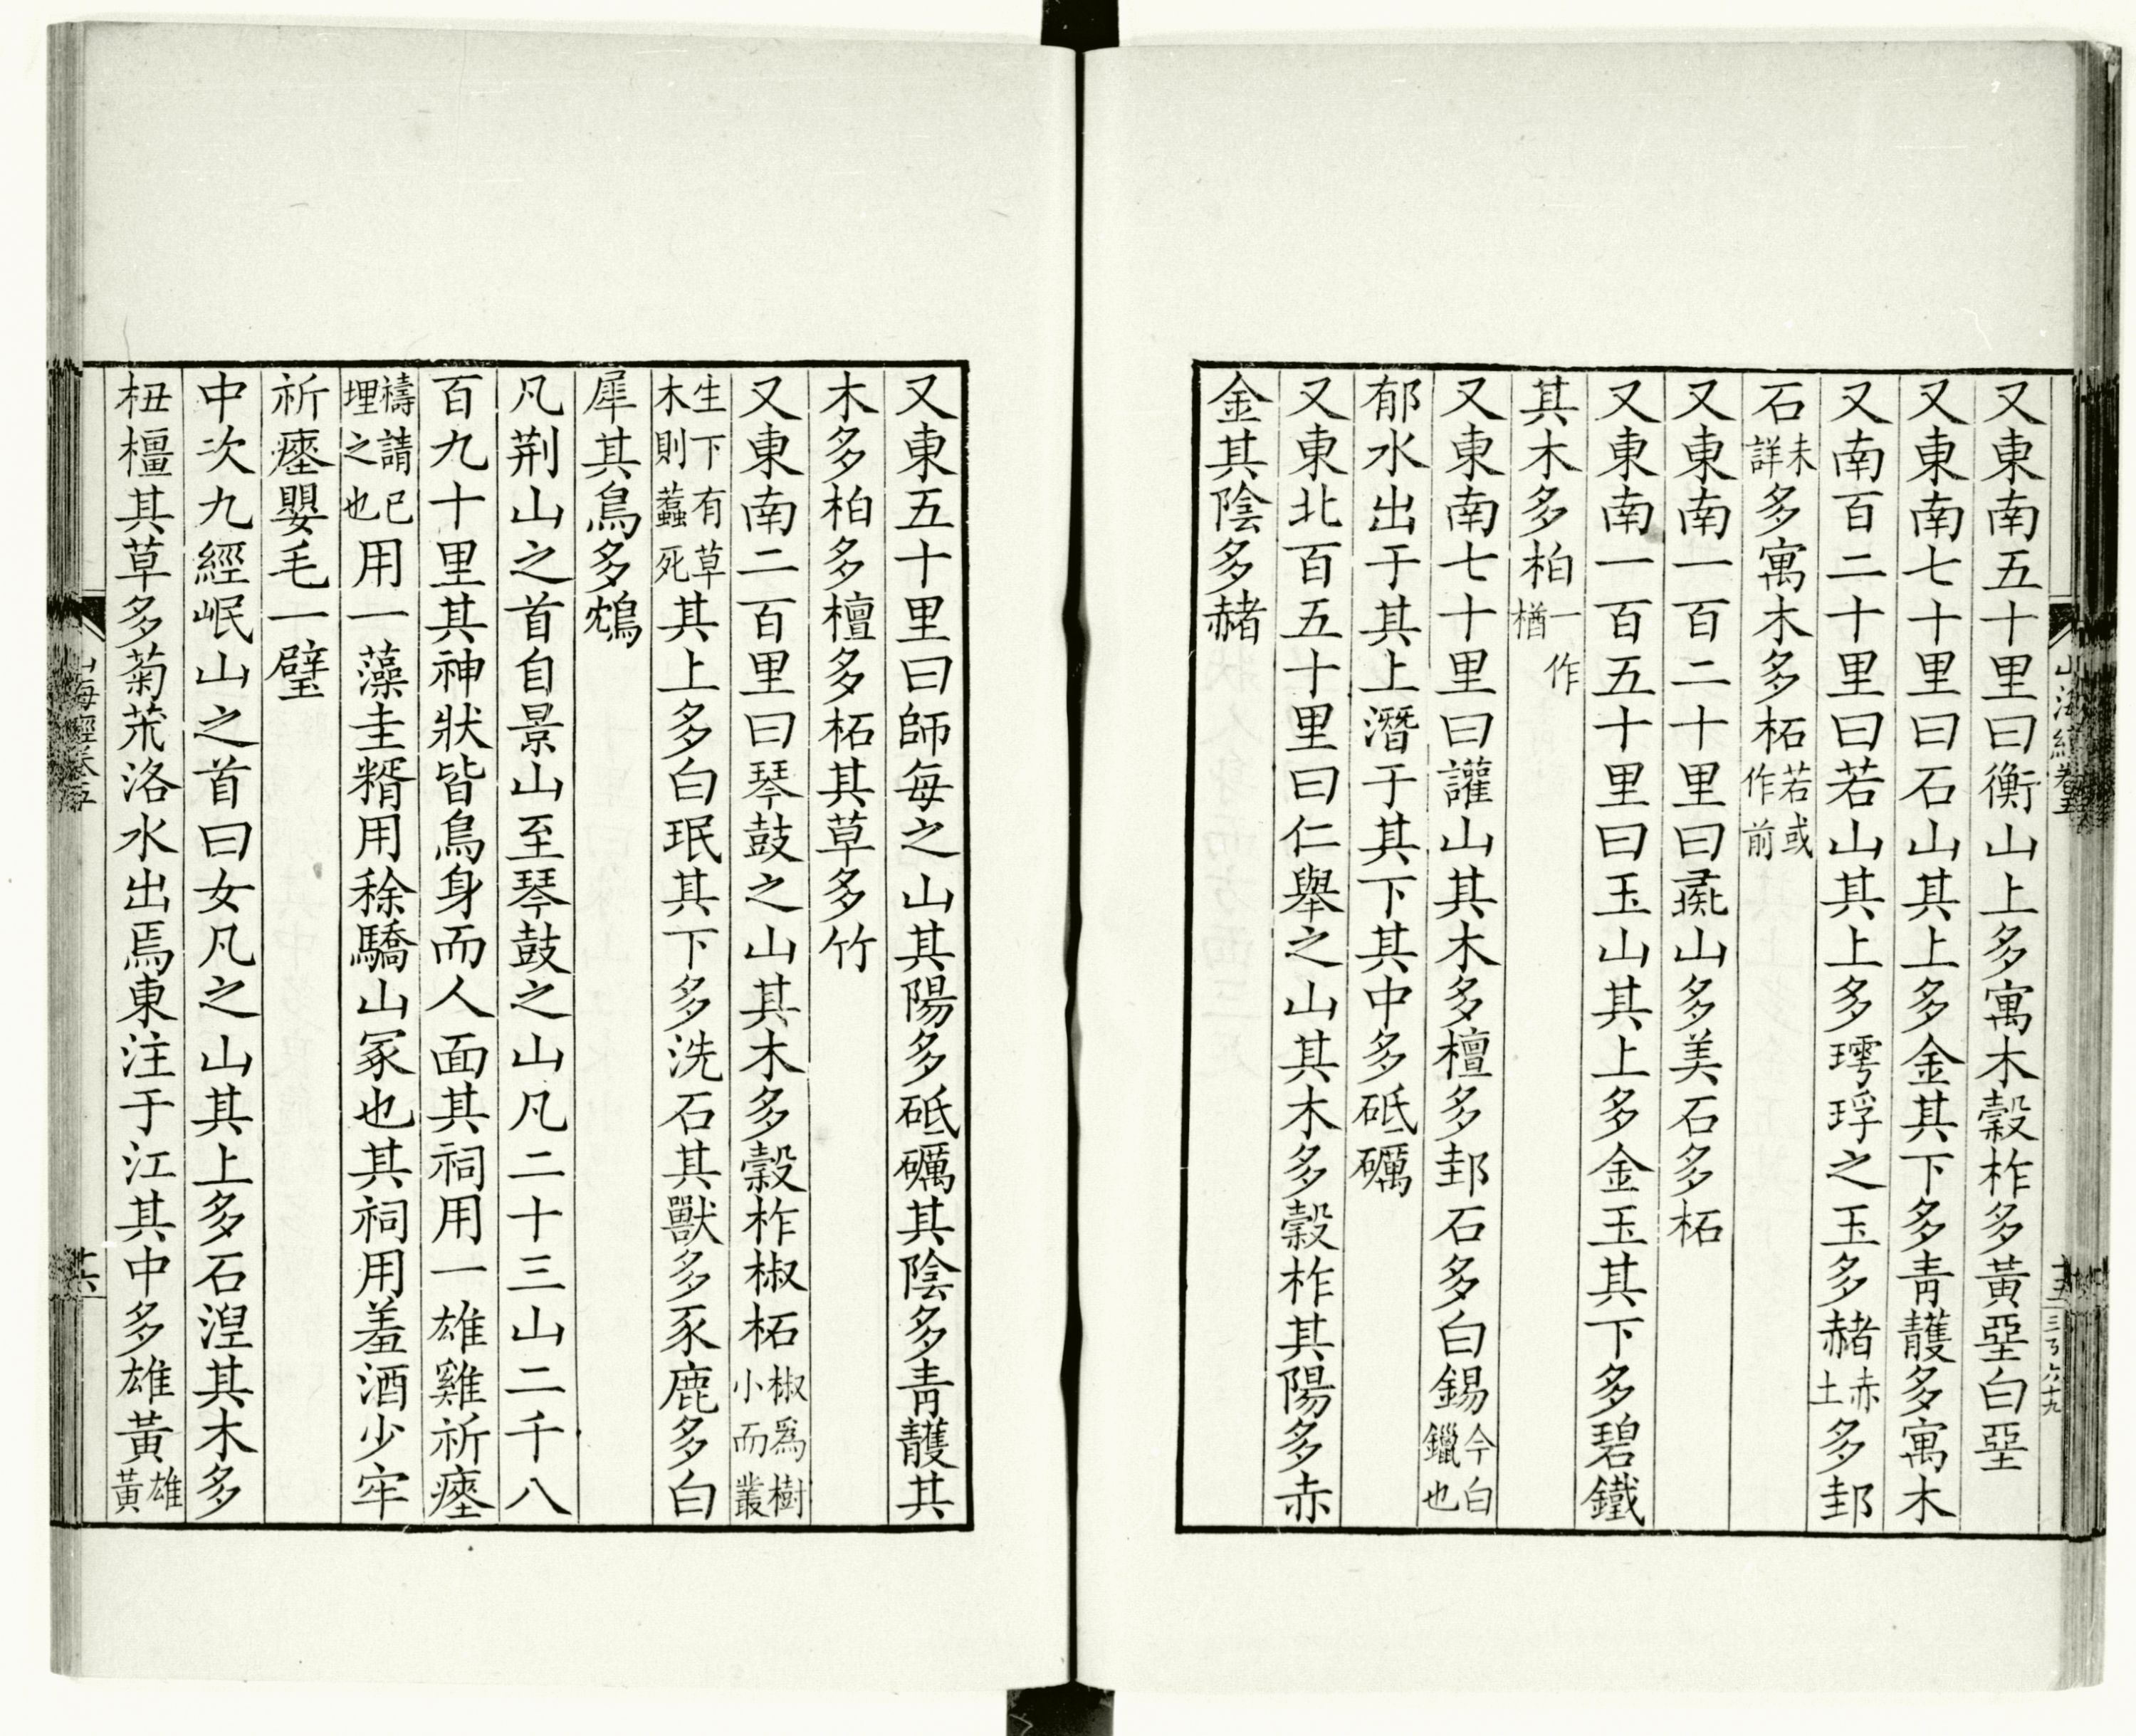 又東南五十里曰衡山上多寓木榖柞多黃堊白堊
又東南七十里曰石山其上多金其下多青雘多寓木
又南百二十里曰若山其上多㻬琈之玉多赭赤土多邽
石未詳多寓木多柘若或作前
又東南一百二十里曰彘山多美石多柘
又東南一百五十里曰玉山其上多金玉其下多碧鐵
其木多柏一作楢
又東南七十里曰讙山其木多檀多邽石多白錫今白鑞也
郁水出于其上潛于其下其中多砥礪
又東北百五十里曰仁舉之山其木多榖柞其陽多赤
金其陰多赭
山海經卷五
十五
又東五十里曰師每之山其陽多砥礪其陰多青雘其
木多柏多檀多柘其草多竹
又東南二百里曰琴鼓之山其木多榖柞椒柘椒爲樹小而叢
生下有草木則蠚死其上多白珉其下多洗石其獸多豕鹿多白
犀其鳥多鴆
凡荆山之首自景山至琴鼓之山凡二十三山二千八
百九十里其神狀皆鳥身而人面其祠用一雄雞祈瘞
禱請已埋之也用一藻圭糈用稌驕山冢也其祠用羞酒少牢
祈瘞嬰毛一璧
中次九經岷山之首曰女凡之山其上多石涅其木多
杻橿其草多菊荒洛水出焉東注于江其中多雄黃雄黃
山海經卷五
十六